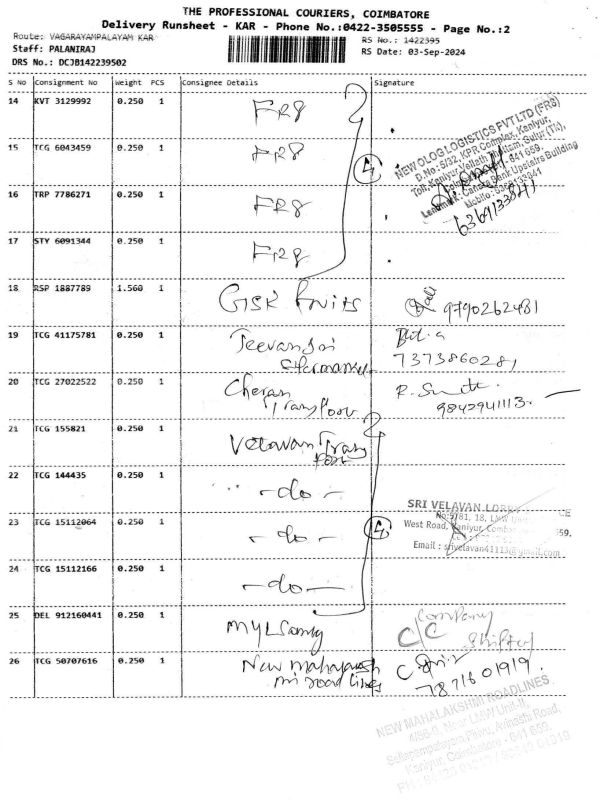 THE PROFESSIONAL COURIERS, COIMBATORE
Delivery Runsheet - KAR - Phone No.:0422-3505555 - Page No.:2
Route: VAGARAYAMPALAYAM KAR
RS No.: 1422395
Staff: PALANIRAJ
RS Date: 03-Sep-2024
DRS No.: DCJB142239502
S No Consignment No Weight PCS Consignee Details Signature
14 KVT 3129992 0.250 1 FR8
15 TCG 6043459 0.250 1 FR8
16 TRP 7786271 0.250 1 FR8
17 STY 6091344 0.250 1 FR8
4
NEW OLOG LOGISTICS PVT LTD (FRS)
D.No: 5/32, KPR Complex, Kaniyur,
Landmark: Canara Bank Upstairs Building
6369133841
18 RSP 1887789 1.560 1 GSK Fruits 9790262481
19 TCG 41175781 0.250 1 Jeevan
7373860281
20 TCG 27022522 0.250 1 Cheran Transport
9842941113
21 TCG 155821 0.250 1 Velavan Trans
port
22 TCG 144435 0.250 1 -do-
23 TCG 15112064 0.250 1 -do-
4
24 TCG 15112166 0.250 1 -do-
SRI VELAVAN LORRY
West Road, Kaniyur,
Email : srivelavan41113@gmail.com
25 DEL 912160441 0.250 1 Mylsamy
Company
C/C
26 TCG 50707616 0.250 1 New
road lines
7871601919
NEW MAHALAKSHMI ROADLINES
Near LMW Unit-II,
Avinashi Road,
Kaniyur, Coimbatore - 641 659.